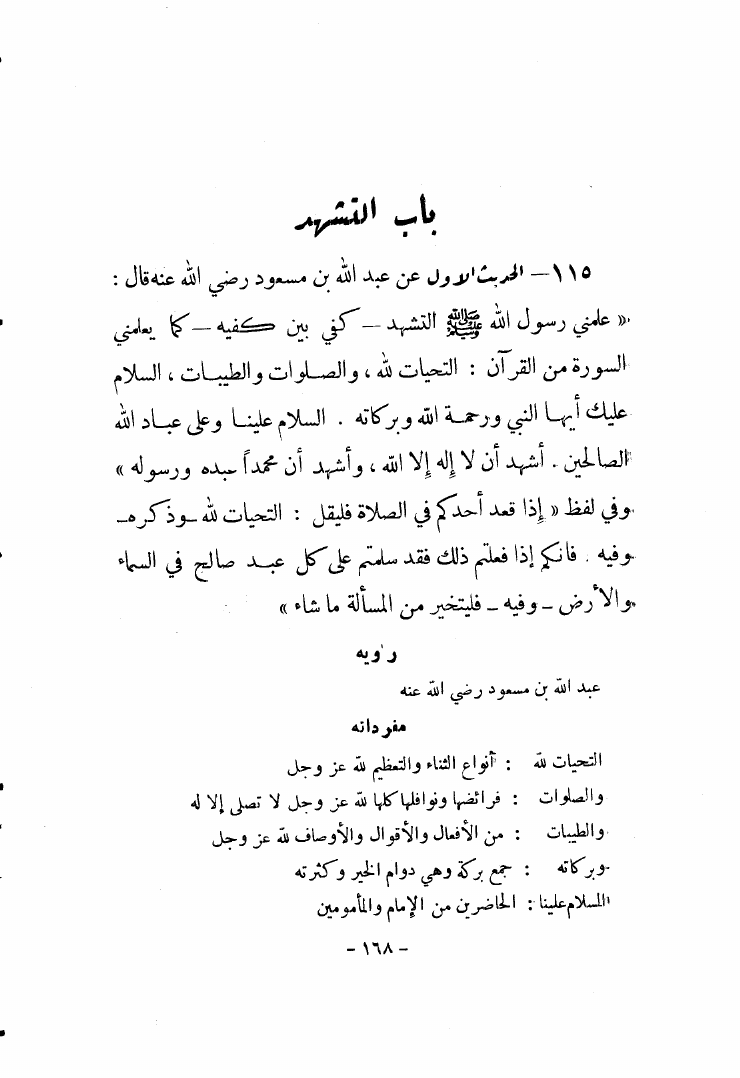 باب التشهد
١١٥ – الحديث الاول عن عبد الله بن مسعود رضي الله عنه قال :
« علمني رسول الله ﷺ التشهد – كفي بين كفيه – كما يعلمني
السورة من القرآن : التحيات لله ، والصلوات والطيبات ، السلام
عليك أيها النبي ورحمة الله وبركاته . السلام علينا وعلى عباد الله
الصالحين . أشهد أن لا إله إلا الله ، وأشهد أن محمداً عبده ورسوله »
وفي لفظ « إذا قعد أحدكم في الصلاة فليقل : التحيات لله – وذكره –
وفيه . فانكم إذا فعلتم ذلك فقد سلمتم على كل عبد صالح في السماء
والأرض – وفيه – فليتخير من المسألة ما شاء »
راويه
عبد الله بن مسعود رضي الله عنه
مفرداته
التحيات لله : أنواع الثناء والتعظيم لله عز وجل
والصلوات : فرائضها ونوافلها كلها لله عز وجل لا تصلى إلا له
والطيبات : من الأفعال والأقوال والأوصاف لله عز وجل
وبركاته : جمع بركة وهي دوام الخير وكثرته
السلام علينا : الحاضرين من الإمام والمأمومين
– ١٦٨ –